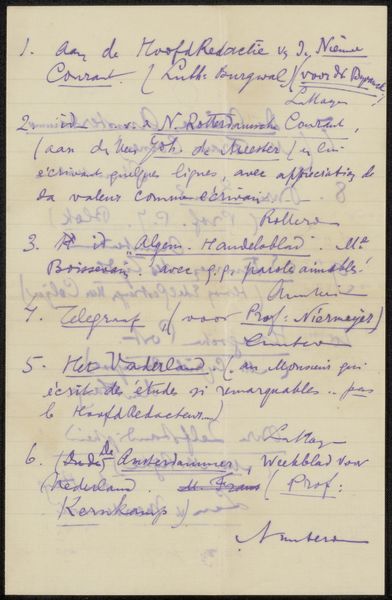 1. Aan de HoofdRedactie v/d Nieuwe
Courant. (Luth: Burgwal) (voor Dr Byvanck)
La Haye
2. id v. d. N. Rotterdamsche Courant,
(aan de Heer Joh. de Meester) en lui
écrivant quelques lignes, avec appréciation de
sa valeur comme écrivain.
Rotterd
3. id Algem. Handelsblad. Mr
Boissevain avec q.q. parole aimable!
Amsterd
4. Telegraaf (voor Prof: Niermeyer)
Amsterd
5. Het Vaderland. (au Monsieur qui
écrit des études si remarquables.. pas
le HoofdRedacteur...)
La Haye
6. (Oude) de Amsterdammer, Weekblad voor
Nederland. (Prof:
Kernkamp)
Amsterd